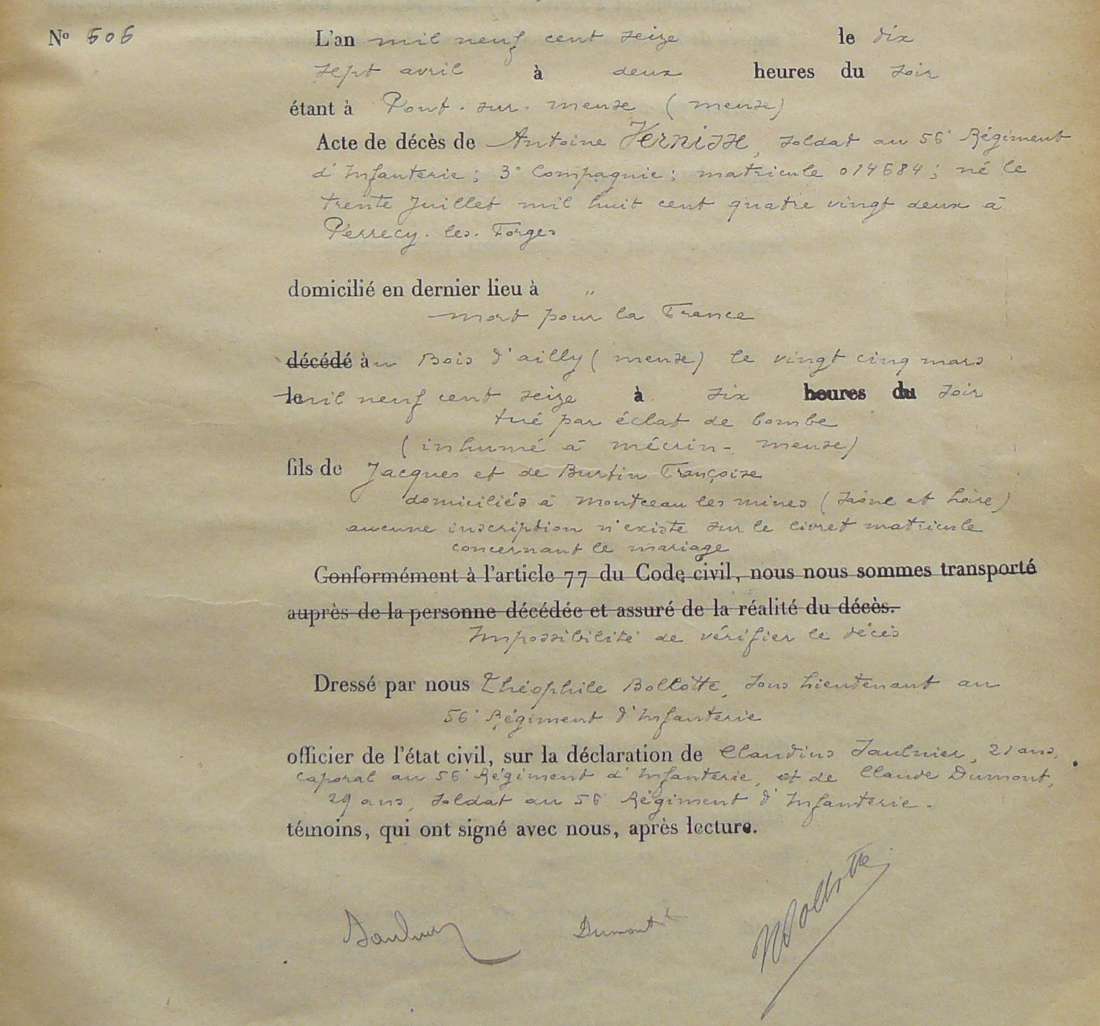 No 505 L'an mil neuf cent seize le dix
sept avril à deux heures du soir
étant à Pont-sur-meuse (meuse)
Acte de décès de Antoine Vernisse, soldat au 56e Régiment
d'Infanterie; 3e Compagnie; matricule 014584; né le
trente Juillet mil huit cent quatre vingt deux à
Perrecy-les-Forges
domicilié en dernier lieu à "
mort pour la France
décédé au Bois d'ailly (meuse) le vingt cinq mars
le mil neuf cent seize à six heures du soir
tué par éclat de bombe
(inhumé à mécrin - meuse)
fils de Jacques et de Burtin Françoise
domiciliés à montceau les mines (Saône et Loire)
aucune inscription n'existe sur le livret matricule
concernant le mariage
Conformément à l'article 77 du Code civil, nous nous sommes transporté
auprès de la personne décédée et assuré de la réalité du décès.
Impossibilité de vérifier le décès
Dressé par nous Théophile Bollotte, Sous Lieutenant au
56e Régiment d'Infanterie
officier de l'état civil, sur la déclaration de Claudius Saulnier, 21 ans,
caporal au 56e Régiment d'Infanterie, et de Claude Dumont,
29 ans, soldat au 56 Régiment d'Infanterie.
témoins, qui ont signé avec nous, après lecture.
Saulnier Dumont Bollotte